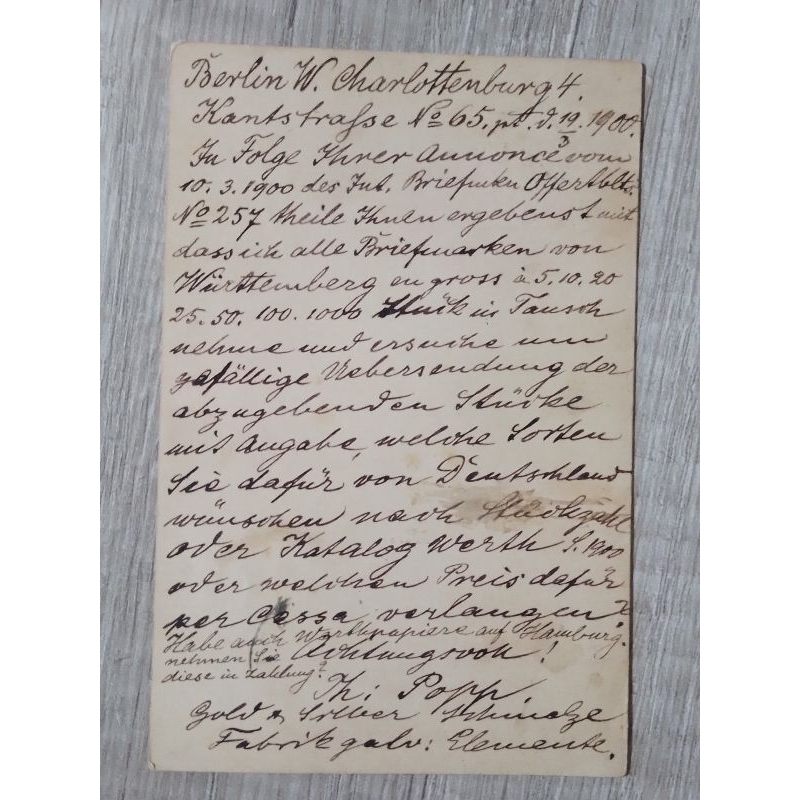 Berlin W. Charlottenburg 4.
Kantstrasse No 65. pt. d. 19/3. 1900.
In Folge Ihrer Annonce vom
10. 3. 1900 des Int. Briefmken Offertblts.
No 257 theile Ihnen ergebenst mit
dass ich alle Briefmarken von
Württemberg en gross à 5. 10. 20
25. 50. 100. 1000 Stück in Tausch
nehme und ersuche um
gefällige Uebersendung der
abzugebenden Stücke
mit Angabe, welche Sorten
Sie dafür von Deutschland
wünschen nach Stückzahl
oder Katalog Werth S. 1900
oder welchen Preis dafür
per Cassa verlangen?
Habe auch Werthpapiere auf Hamburg.
nehmen Sie Achtungsvoll!
diese in Zahlung?
Th: Popp
Gold & Silber Schmelze
Fabrik galv: Elemente.